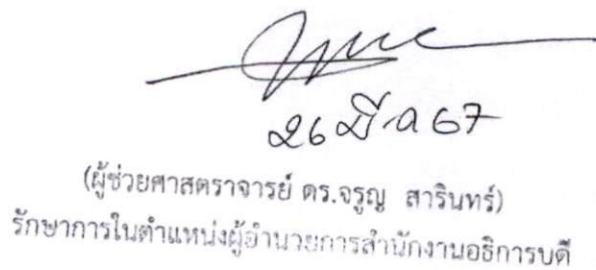 26 มี.ค 67
(ผู้ช่วยศาสตราจารย์ ดร.จรูญ สารินทร์)
รักษาการในตำแหน่งผู้อำนวยการสำนักงานอธิการบดี